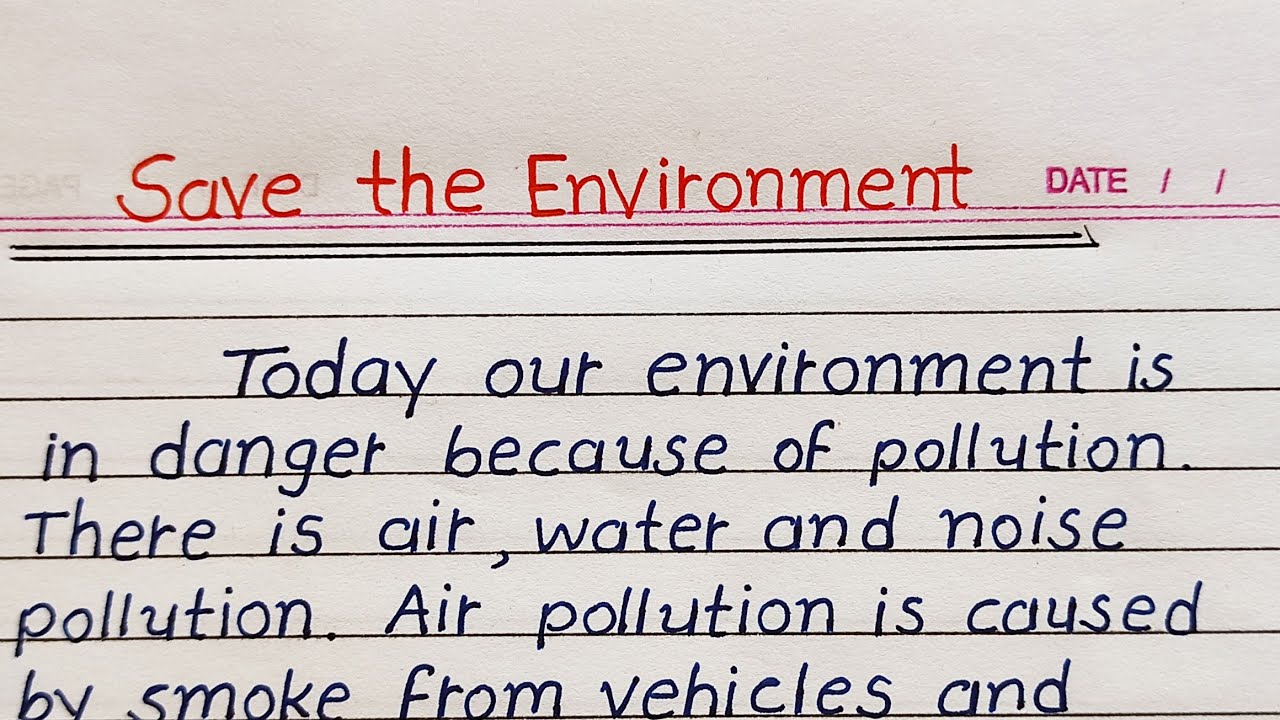 Save the Environment
DATE / /
Today our environment is
in danger because of pollution.
There is air, water and noise
pollution. Air pollution is caused
by smoke from vehicles and